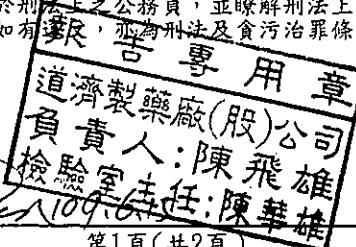 於刑法上之公務員，並瞭解刑法上
如有違反，亦為刑法及貪污治罪條
報告專用章
道濟製藥廠(股)公司
負責人:陳飛雄
檢驗室主任:陳華雄
第1頁(共2頁)